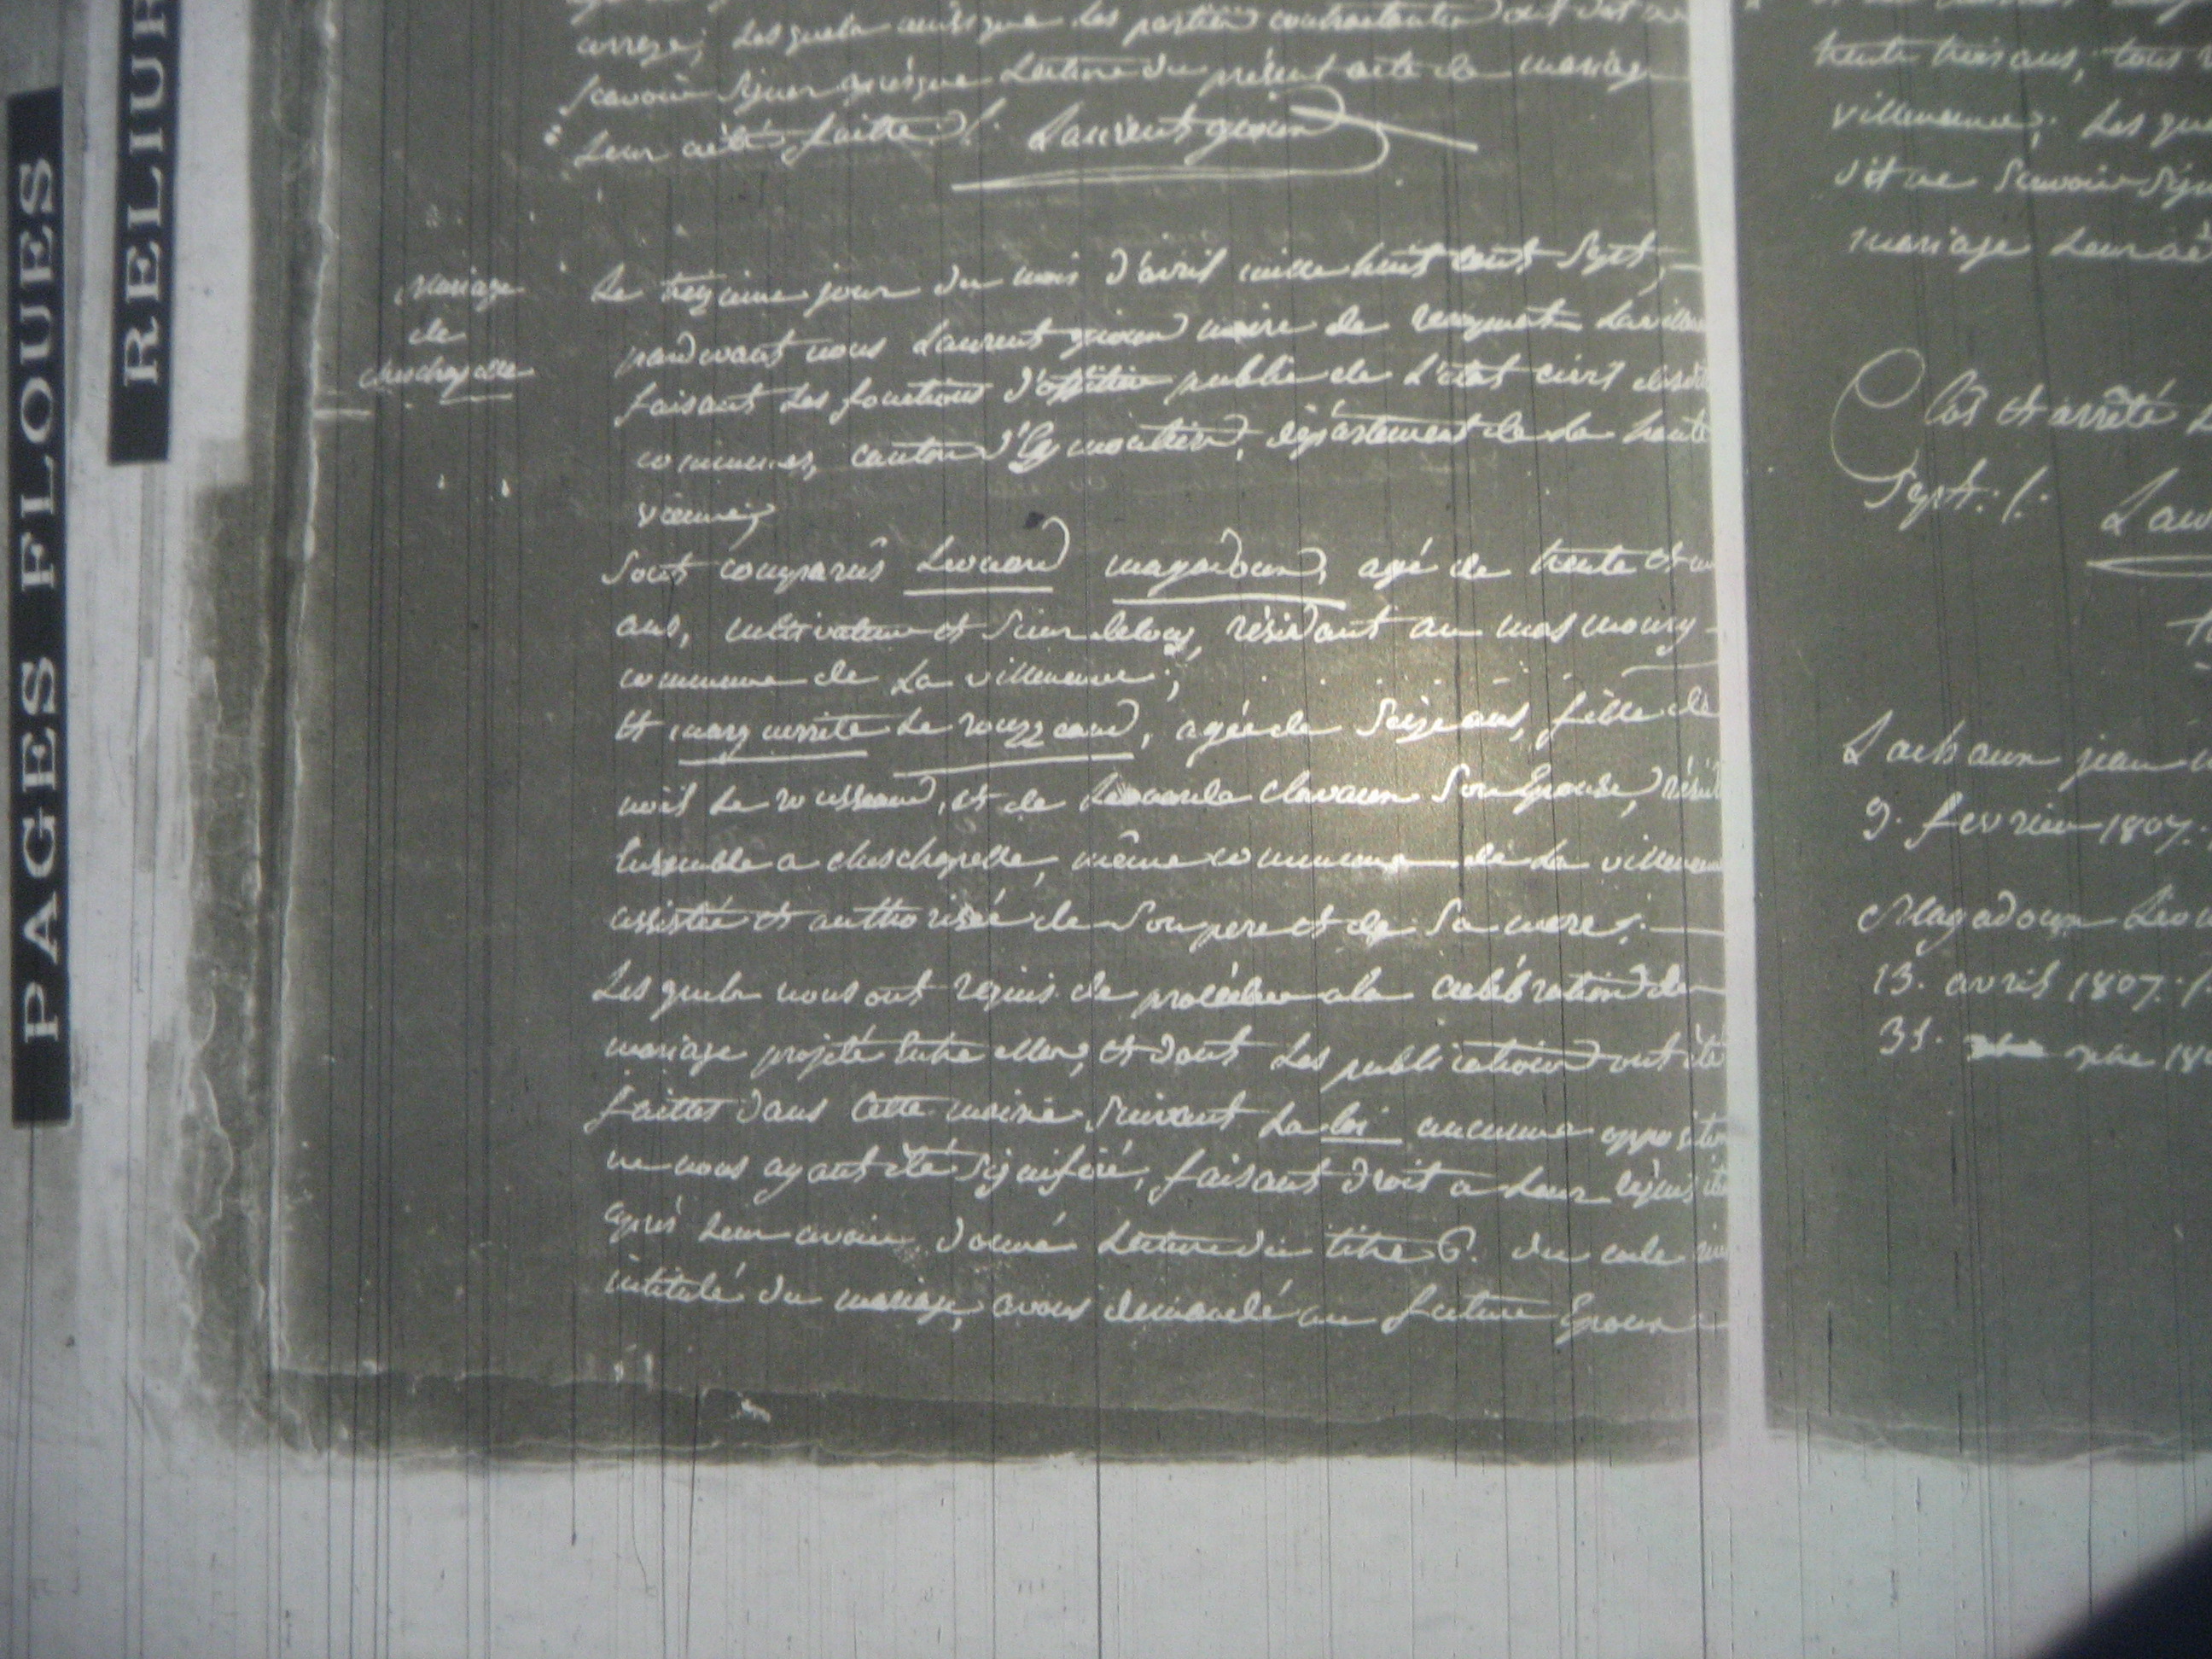 PAGES FLOUES
RELIUR
correze; Lesquels ainsi que les parties contractantes ont dit ne
scavoir signer apres que Lecture du present acte de mariage
Leur aété faitte ./. Laurent gioux
mariage
de
cheschapelle
Le treizieme jour du mois d'avril mille huit cent Sept,
pardevant nous Laurent gioux maire de remynat Laville
faisant Les fonctions d'officier public de L'état civil
communes, canton d'Eymoutiers, département de La haute
vienne;
Sont comparûs Leonard magadoux, agé de trente et un
ans, cultivateur et Sieur delong, résidant au mas moury
commune de La villeneuve;
et marguerite Le rouzzeaud, agée de Seize ans, fille de
noil Le rousseaud, et de Leonarde clavaux Son Epouse, résid
Ensemble a cheschapelle, même commune de La villeneuve
assistée et authorisée de Son pere et de Sa mere;
Lesquels nous ont requis de proceder a la celébration du
mariage projeté Entre elles, et dont Les publications ont été
faittes dans Cette mairie, Suivant La loi aucune opposition
ne nous ayant été Signifiée, faisant droit a Leur requisition
après Leur avoir donné Lecture du titre 6. du code civil
intitulé du mariage, avons demandé au future Epoux
trente trois ans, tous
villeneuve; Les qu
dit ne Scavoir Sign
mariage Leur aét
Clos et arrêté
Sept. /. Lau
Lachaux jean
9. fevrier 1807.
Magadoux Leo
13. avril 1807. /.
31. xbre 18